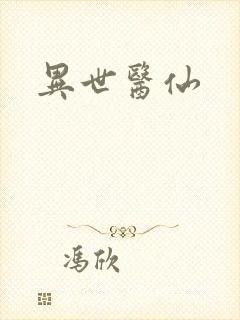 異世醫仙
馮欣